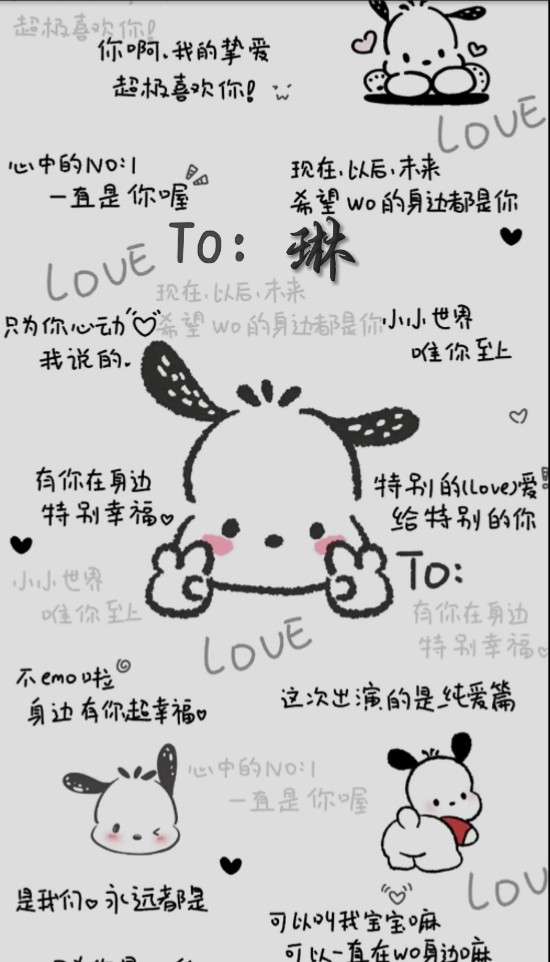 超极喜欢你!
你啊、我的挚爱
超极喜欢你!
LOVE
心中的NO:1
一直是你喔
现在、以后、未来
希望wo的身边都是你
To: 琳
LOVE
现在、以后、未来
希望wo的身边都是你
只为你心动
我说的.
小小世界
唯你至上
有你在身边
特别幸福
特别的(Love)爱
给特别的你
To:
小小世界
唯你至上
有你在身边
特别幸福
LOVE
不emo啦
身边有你超幸福
这次出演的是纯爱篇
心中的NO:1
一直是你喔
是我们 永远都是
LOV
可以叫我宝宝嘛
可以一直在wo身边嘛